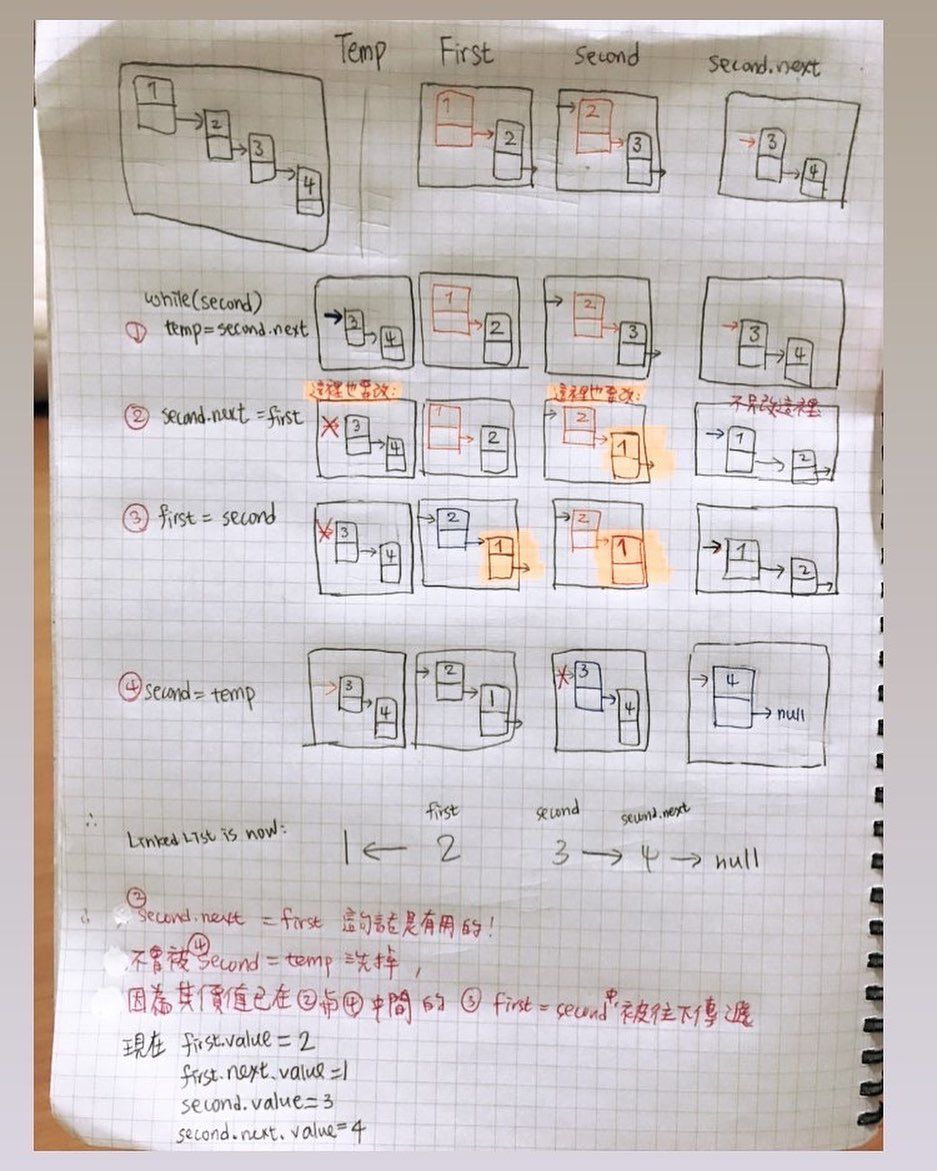 Temp First Second Second.next
1 2 3 4 1 2 2 3 3 4
while(second)
① temp=second.next 3 4 1 2 2 3 3 4
這裡也要改! 這裡也要改! 不只改這裡
② second.next = first 3 4 1 2 2 1 1 2
③ first = second 3 4 2 1 2 1 1 2
④ second = temp 3 4 2 1 3 4 4 → null
first second second.next
∴ Linked List is now: 1 ← 2 3 → 4 → null
∴ ② second.next = first 這句話是有用的!
不會被④second = temp 洗掉,
因為其價值已在②與④中間的 ③ first = second中被往下傳遞
現在 first.value = 2
first.next.value=1
second.value=3
second.next.value=4